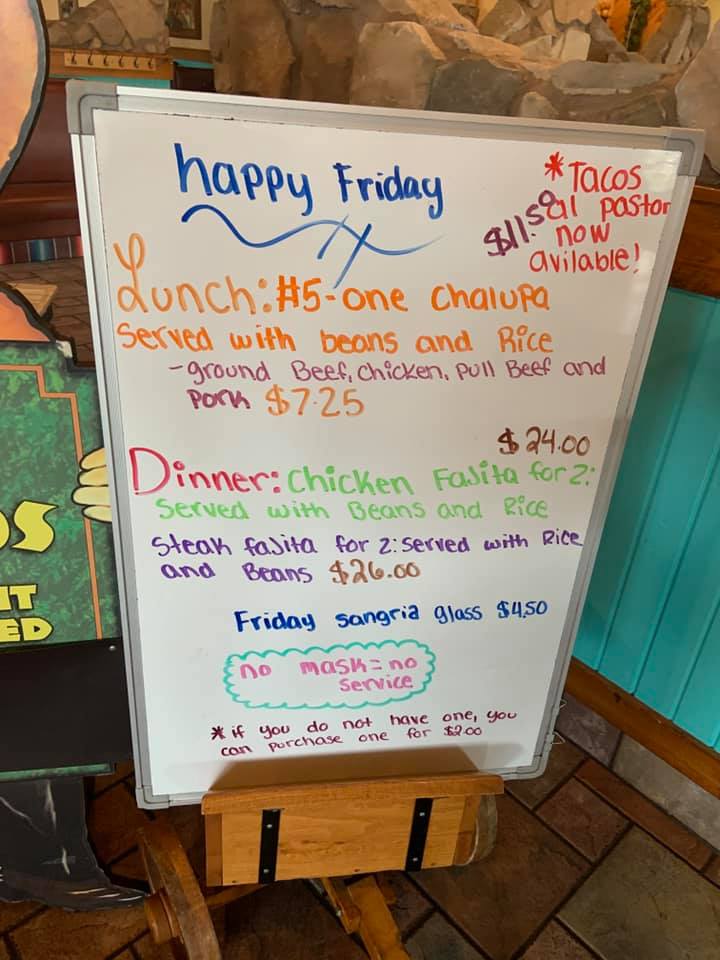 happy Friday
*Tacos
$11.50 al pastor
now
avilable!
Lunch: #5-one chalupa
Served with beans and Rice
-ground Beef, chicken, pull Beef and
pork $7.25
$24.00
Dinner: Chicken Fajita for 2:
Served with Beans and Rice
Steak fajita for 2: served with Rice
and Beans $26.00
Friday sangria glass $4.50
no mask = no
service
*if you do not have one, you
can purchase one for $2.00
OS
IT
ED